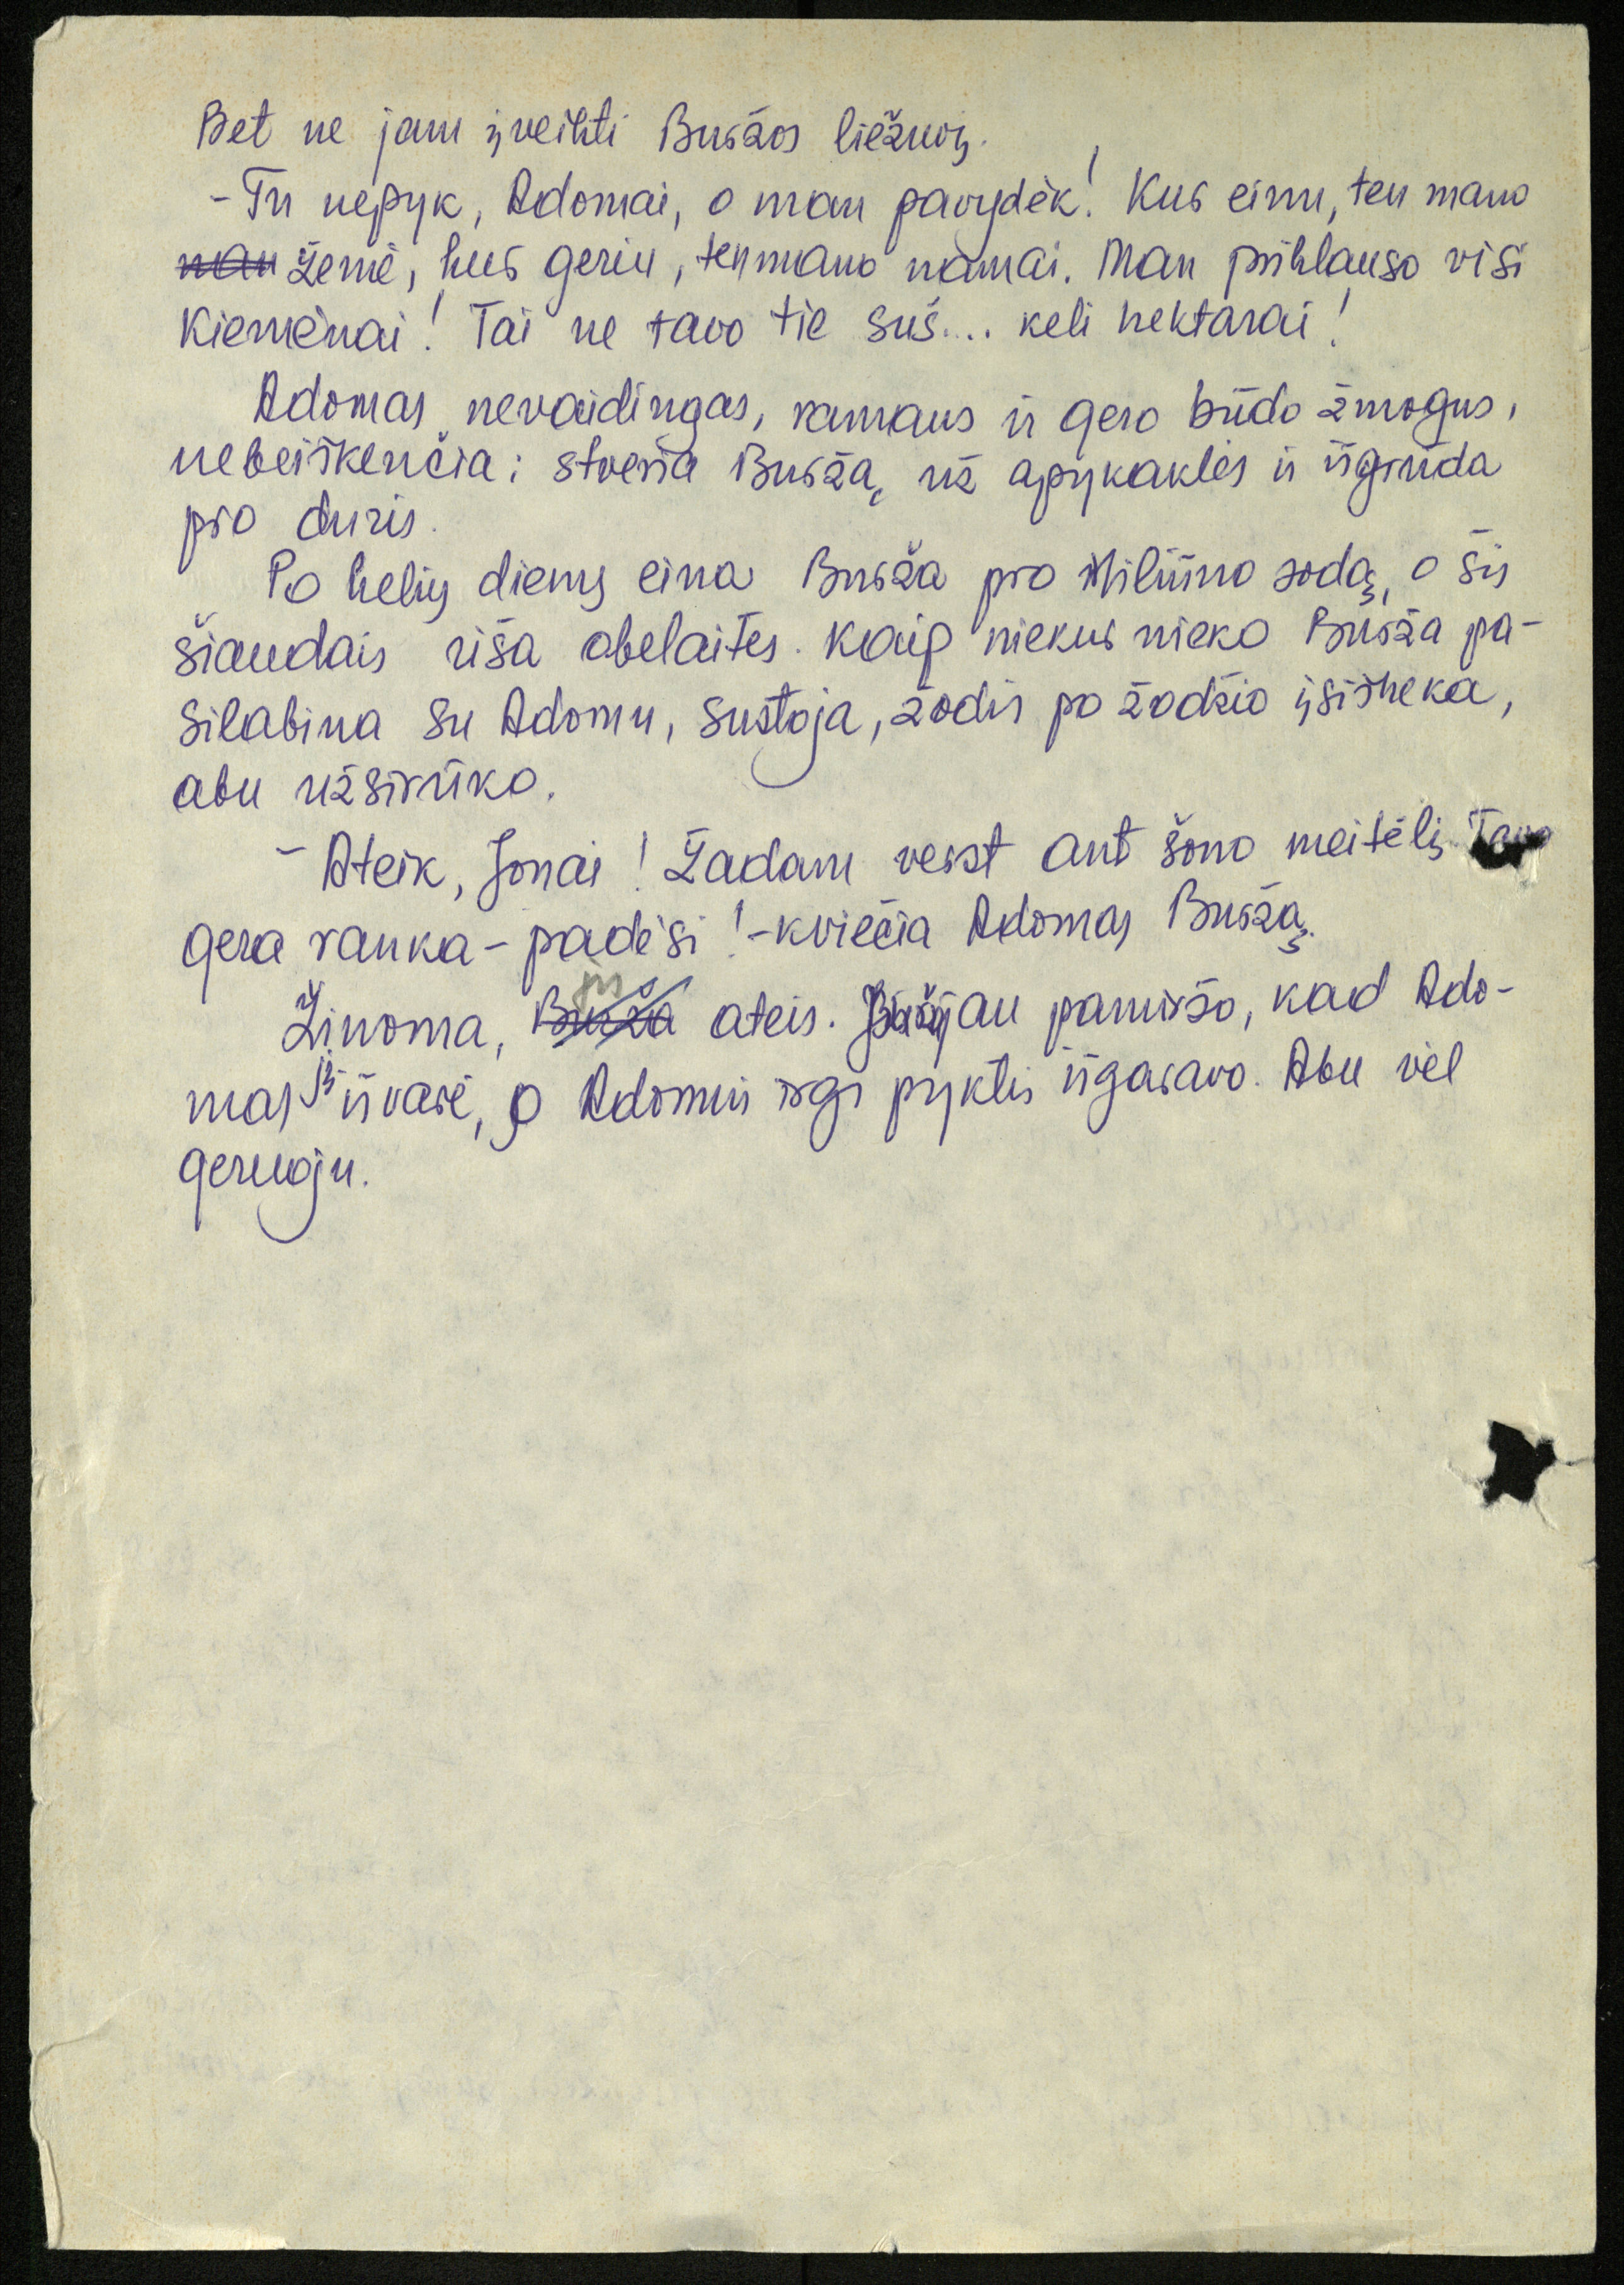 Bet ne jam įveikti Buržos liežuvį.
- Tu nepyk, Adomai, o man pavydėk! Kur einu, ten mano
man žemė, kur geriu, ten mano namai. Man priklauso visi
Kiemėnai! Tai ne tavo tie suš.... keli hektarai!
Adomas nevaidingas, ramaus ir gero būdo žmogus,
nebeiškenčia: stveria Buržą už apykaklės ir išgrūda
pro duris.
Po kelių dienų eina Burža pro Milūno sodą, o šis
šiaudais riša obelaites. Kaip niekur nieko Burža pa-
silabina su Adomu, sustoja, žodis po žodžio įsišneka,
abu užsirūko.
- Ateik, Jonai! Žadam verst ant šono meitėlį. Tavo
gera ranka - padėsi! - kviečia Adomas Buržą.
jis
Žinoma, Burža ateis. Jis jau pamiršo, kad Ado-
mas jį išvarė, o Adomui irgi pyktis išgaravo. Abu vėl
geruoju.